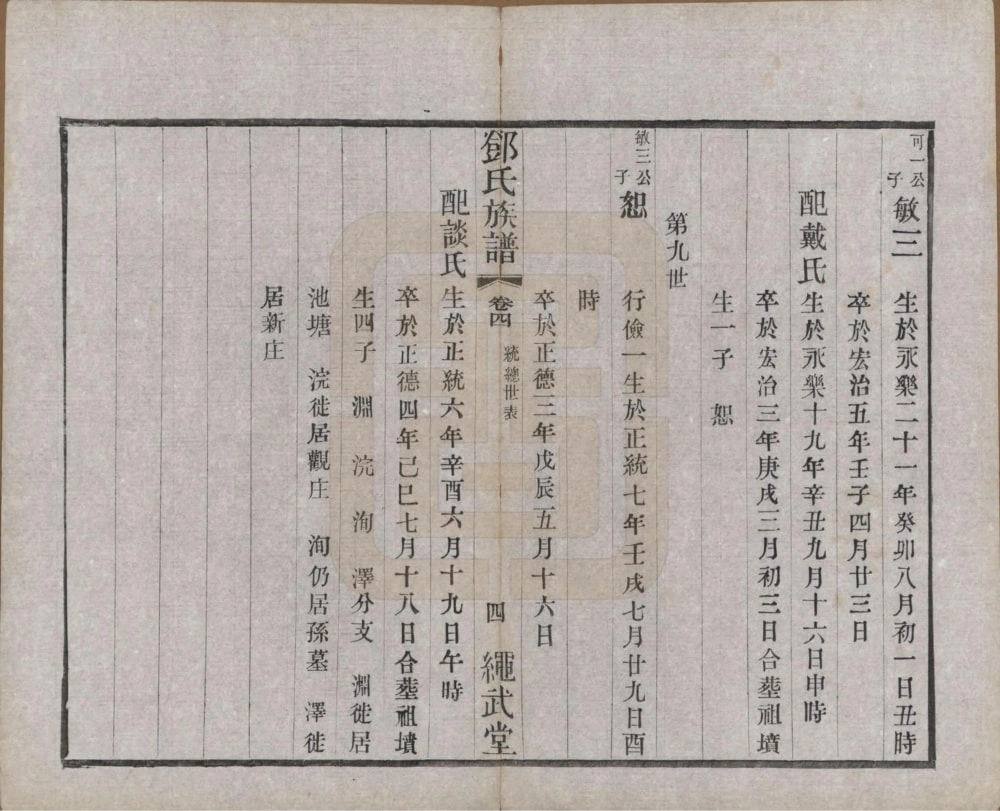 可一公子敏三 生於永樂二十一年癸卯八月初一日丑時
卒於宏治五年壬子四月廿三日
配戴氏生於永樂十九年辛丑九月十六日申時
卒於宏治三年庚戌三月初三日合塟祖墳
生一子 恕
第九世
敏三公子恕 行儉一生於正統七年壬戌七月廿九日酉
時
卒於正德三年戊辰五月十六日
鄧氏族譜 卷四 統總世表 四 繩武堂
配談氏生於正統六年辛酉六月十九日午時
卒於正德四年己巳七月十八日合塟祖墳
生四子 淵 浣 洵 澤分支 淵徙居
池塘 浣徙居觀庄 洵仍居孫墓 澤徙
居新庄